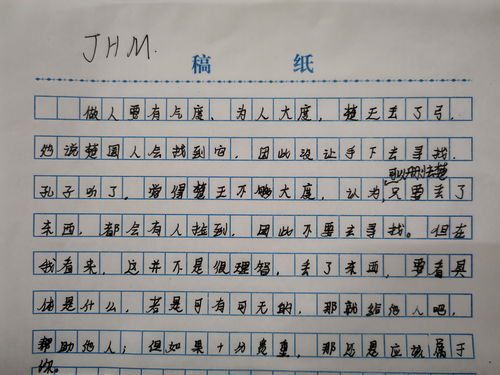 JHM.
稿 纸
做人要有气度、为人大度，楚王丢了弓，
他说楚国人会找到它，因此没让手下去寻找，
可以删去楚
孔子听了，觉得楚王不够大度，认为，只要丢了
东西，都会有人捡到，因此不要去寻找。但在
我看来，这并不是很理智，丢了东西，要看具
体是什么，若是可有可无的，那就给他人吧，
帮助他人；但如果十分贵重，那还是应该属于
你。